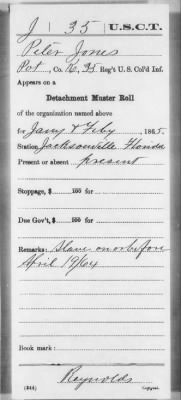 J | 35 | U.S.C.T.
Peter Jones
Pvt, Co. K, 35 Reg't U. S. Col'd Inf.
Appears on a
Detachment Muster Roll
of the organization named above
for Jany & Feby, 1865.
Station Jacksonville Florida
Present or absent present
Stoppage, $ 100 for
Due Gov't, $ 100 for
Remarks: Slave on or before
April 19/64
Book mark:
Reynolds
(344) Copyist.